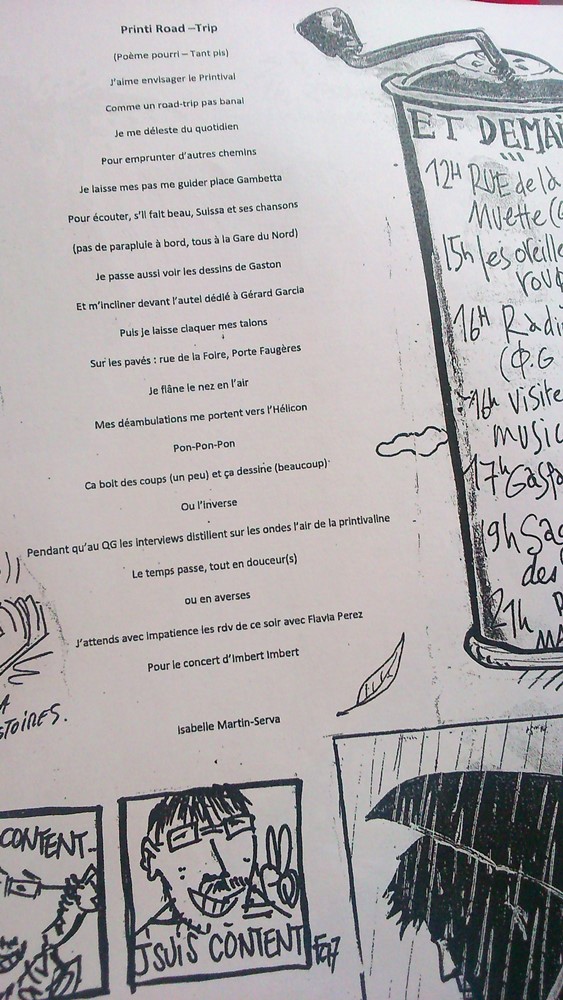 Printi Road –Trip
(Poème pourri – Tant pis)
J'aime envisager le Printival
Comme un road-trip pas banal
Je me déleste du quotidien
Pour emprunter d'autres chemins
Je laisse mes pas me guider place Gambetta
Pour écouter, s'il fait beau, Suissa et ses chansons
(pas de parapluie à bord, tous à la Gare du Nord)
Je passe aussi voir les dessins de Gaston
Et m'incliner devant l'autel dédié à Gérard Garcia
Puis je laisse claquer mes talons
Sur les pavés : rue de la Foire, Porte Faugères
Je flâne le nez en l'air
Mes déambulations me portent vers l'Hélicon
Pon-Pon-Pon
Ca boit des coups (un peu) et ça dessine (beaucoup)
Ou l'inverse
Pendant qu'au QG les interviews distillent sur les ondes l'air de la printivaline
Le temps passe, tout en douceur(s)
ou en averses
J'attends avec impatience les rdv de ce soir avec Flavia Perez
Pour le concert d'Imbert Imbert
Isabelle Martin-Serva
ET DEMAI
12H RUE de la
Muette (
15h les oreille
roug
16H Radi
(Q.G
16h Visite
music
17h Gasto
9h Sac
des
21h
A
STOIRES.
CONTENT
J'SUIS CONTENT